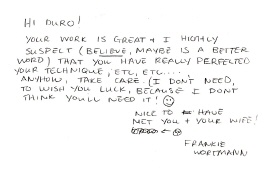 HI DURO!
YOUR WORK IS GREAT & I HIGHLY
SUSPECT (BELIEVE, MAYBE IS A BETTER
WORD) THAT YOU HAVE REALLY PERFECTED
YOUR TECHNIQUE, ETC, ETC....
ANYHOW, TAKE CARE. (I DON'T NEED,
TO WISH YOU LUCK, BECAUSE I DONT
THINK YOU'LL NEED IT!
NICE TO HAVE
MET YOU & YOUR WIFE!
FRANKIE
WORTMANN